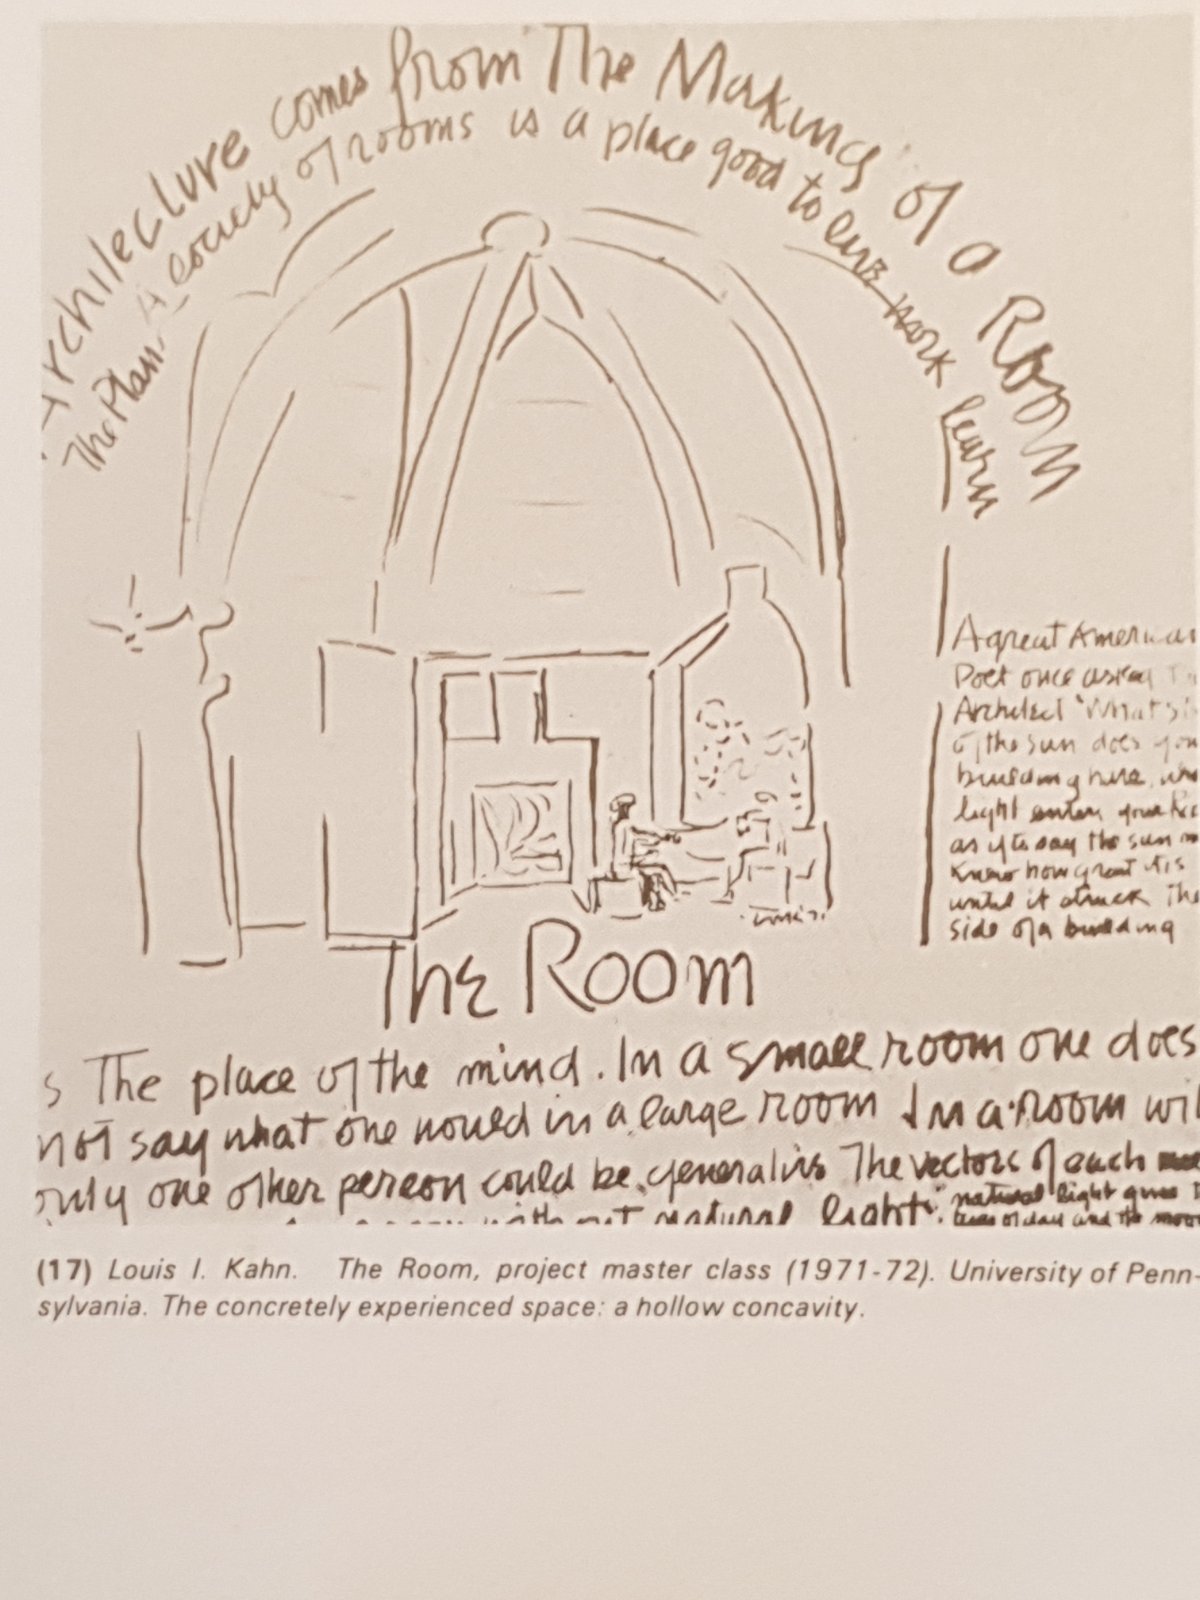 Architecture comes from The Making of a Room
The Plan A society of rooms is a place good to live work learn
A great American
Poet once asked
Architect 'What sli
of the sun does you
building have, wha
light enters your Roo
as if to say the sun n
knew how great it is
until it struck The
side of a building
The Room
s The place of the mind. In a small room one does
not say what one would in a large room In a room wit
only one other person could be generative The vectors of each
natural light gives
natural light
(17) Louis I. Kahn. The Room, project master class (1971-72). University of Penn-
sylvania. The concretely experienced space: a hollow concavity.